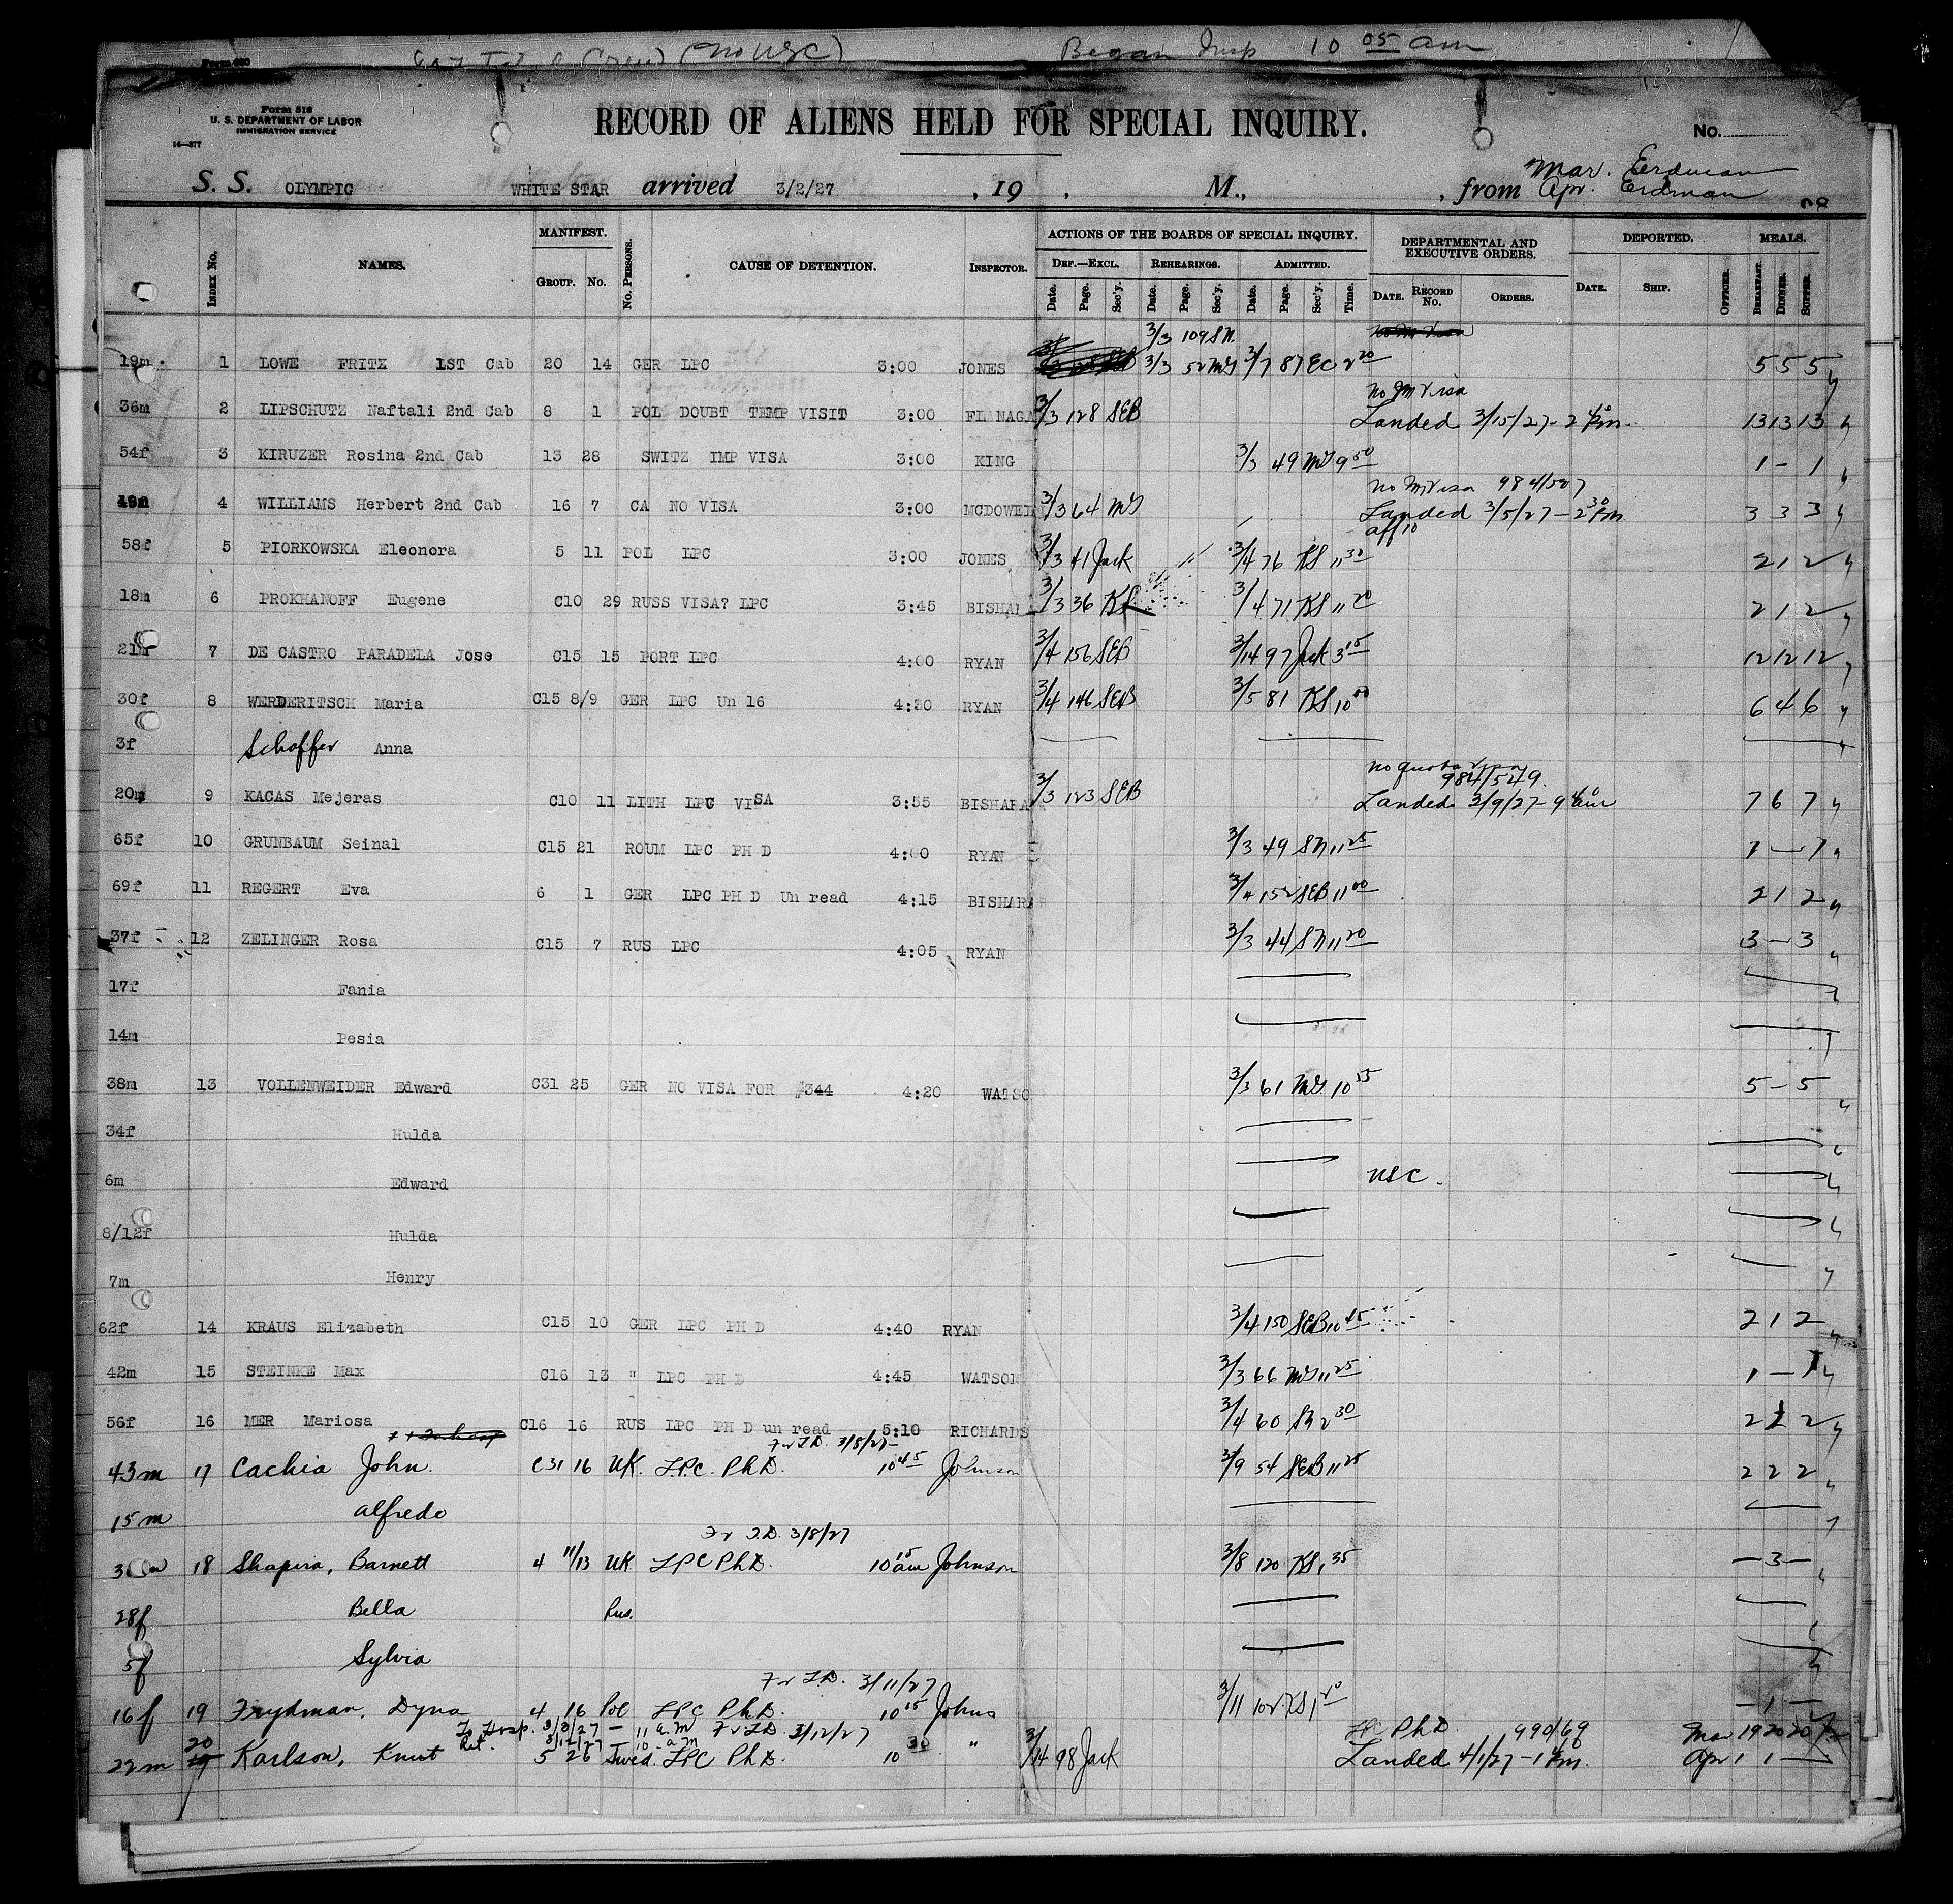 (No USC) Began Insp 10 05 am
Form 518
U. S. DEPARTMENT OF LABOR
IMMIGRATION SERVICE
14—377
RECORD OF ALIENS HELD FOR SPECIAL INQUIRY.
No.
Mar. Erdman
S. S. OLYMPIC WHITE STAR arrived 3/2/27 , 19 , M., , from Apr. Erdman
MANIFEST. ACTIONS OF THE BOARDS OF SPECIAL INQUIRY. DEPARTMENTAL AND EXECUTIVE ORDERS. DEPORTED. MEALS.
Index No. NAMES. Group. No. No. Persons. CAUSE OF DETENTION. Inspector. Def.—Excl. Rehearings. Admitted.
Date. Page. Sec'y. Date. Page. Sec'y. Date. Page. Sec'y. Time. Date. Record No. Orders. Date. Ship. Officer. Breakfast. Dinner. Supper.
3/3 109 SN.
19m 1 LOWE FRITZ 1ST Cab 20 14 GER LPC 3:00 JONES 3/3 52 MG 3/7 87 EC 2 20 5 5 5
no IM Visa
36m 2 LIPSCHUTZ Naftali 2nd Cab 8 1 POL DOUBT TEMP VISIT 3:00 FLANAGA 3/3 128 SEB Landed 3/15/27 - 2 40 pm. 13 13 13
54f 3 KIRUZER Rosina 2nd Cab 13 28 SWITZ IMP VISA 3:00 KING 3/3 49 MG 9 50 1 - 1
no IM Visa 984/527
4 WILLIAMS Herbert 2nd Cab 16 7 CA NO VISA 3:00 MCDOWEL 3/3 64 MG Landed 3/5/27 - 2 30 pm 3 3 3
58f 5 PIORKOWSKA Eleonora 5 11 POL LPC 3:00 JONES 3/3 41 Jack 3/4 76 KS 11 30 2 1 2
18m 6 PROKHANOFF Eugene C10 29 RUSS VISA? LPC 3:45 BISHAR 3/3 36 KS 3/4 71 KS 11 20 2 1 2
21m 7 DE CASTRO PARADELA Jose C15 15 PORT LPC 4:00 RYAN 3/4 156 SEB 3/14 97 Jack 3 15 12 12 12
30f 8 WERDERITSCH Maria C15 8/9 GER LPC Un 16 4:30 RYAN 3/4 146 SEB 3/5 81 KS 10 00 6 4 6
3f Schaffer Anna
no quota visa
984/549
20m 9 KACAS Mejeras C10 11 LITH LPC VISA 3:55 BISHARA 3/3 123 SEB Landed 3/9/27 - 9 40 am 7 6 7
65f 10 GRUNBAUM Seinal C15 21 ROUM LPC PH D 4:00 RYAN 3/3 49 SN 11 25 1 — 1
69f 11 REGERT Eva 6 1 GER LPC PH D Un read 4:15 BISHARA 3/4 152 SEB 11 00 2 1 2
37f 12 ZELINGER Rosa C15 7 RUS LPC 4:05 RYAN 3/3 44 SN 11 20 3 — 3
17f Fania
14m Pesia
38m 13 VOLLENWEIDER Edward C31 25 GER NO VISA FOR #344 4:20 WATSO 3/3 61 MG 10 55 5 - 5
34f Hulda
6m Edward USC.
8/12f Hulda
7m Henry
62f 14 KRAUS Elizabeth C15 10 GER LPC PH D 4:40 RYAN 3/4 150 SEB 10 45 2 1 2
42m 15 STEINKE Max C16 13 " LPC PH D 4:45 WATSON 3/3 66 MG 11 25 1 - 1
56f 16 MER Mariosa C16 16 RUS LPC PH D un read 5:10 RICHARDS 3/4 60 SN 2 30 2 1 2
Fr I.D. 3/8/27
43m 17 Cachia John. C31 16 UK. LPC. PhD. 10 45 Johnson 3/9 54 SEB 11 25 2 2 2
15m Alfredo
Fr I.D. 3/8/27
18 Shapiro, Barnett 4 11/13 UK LPC PhD. 10 15 am Johnson 3/8 120 KS 1 35 — 3 —
28f Bella Rus.
5f Sylvia
Fr I.D. 3/11/27
16f 19 Frydman, Dyna 4 16 Pol LPC PhD. 10 15 Johns 3/11 102 KS 1 20 — 1 —
To Hosp. 3/3/27 — 11 a.m Fr I.D. 3/12/27 LPC PhD. 990/69 Mar 19 20 20
Ret. 3/12/27 — 10 - a m
22m 20 Karlson, Knut 5 26 Swed. LPC PhD. 10 30 " 3/14 98 Jack Landed 4/1/27 - 1 40 pm. Apr 1 1 —